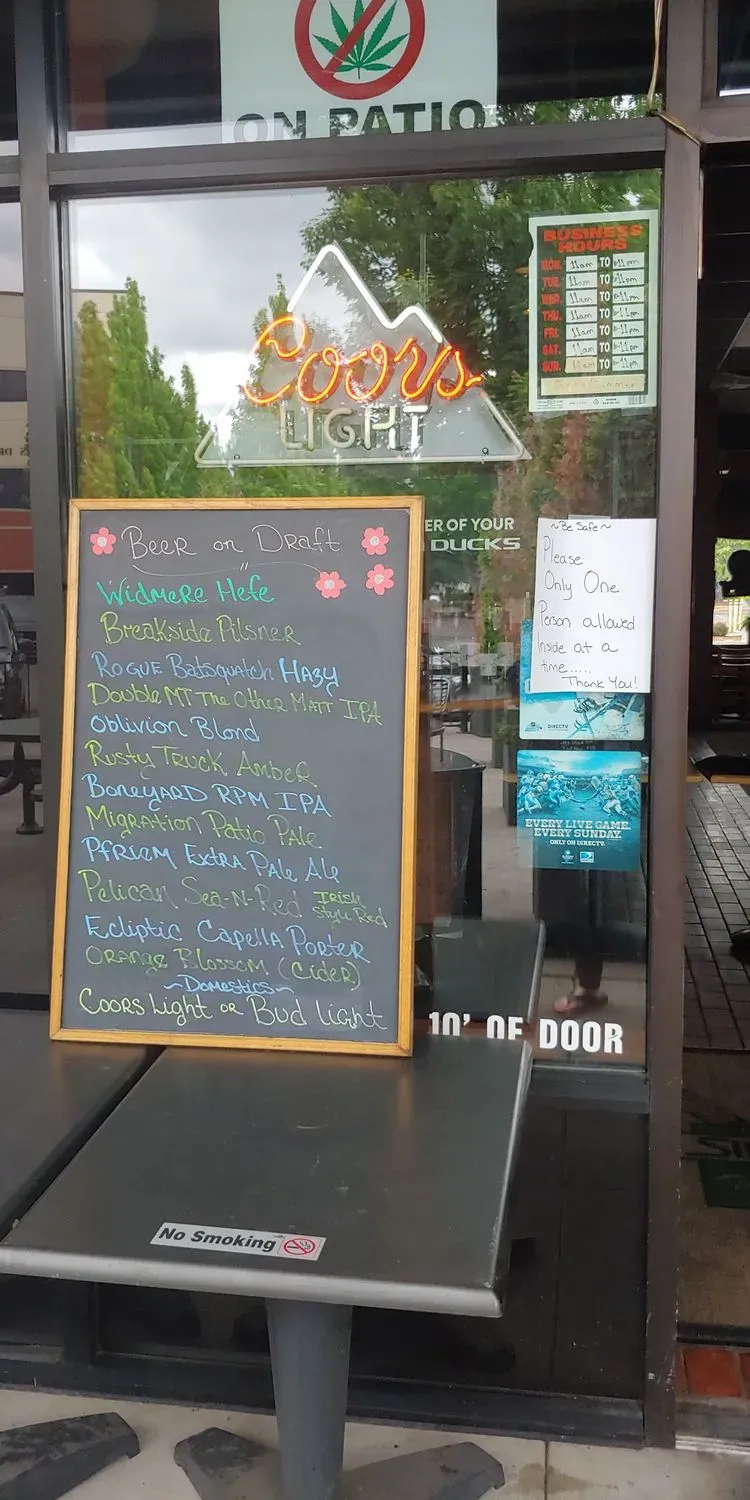 ON PATIO
BUSINESS
HOURS
MON. 11am TO 11pm
TUE. 11am TO 11pm
WED. 11am TO 11pm
THU. 11am TO 11pm
FRI. 11am TO 11pm
SAT. 11am TO 11pm
SUN. 11am TO 11pm
Coors
LIGHT
ER OF YOUR
DUCKS
~Be Safe~
Please
Only One
Person allowed
inside at a
time.....
Thank You!
DIRECTV
EVERY LIVE GAME.
EVERY SUNDAY.
ONLY ON DIRECTV.
Beer on Draft
Widmere Hefe
Breakside Pilsner
Rogue Batsquatch Hazy
Double MT The Other Matt IPA
Oblivion Blond
Rusty Truck Amber
Boneyard RPM IPA
Migration Patio Pale
Pfriem Extra Pale Ale
Pelican Sea-N-Red Irish
Style Red
Ecliptic Capella Porter
Orange Blossom (Cider)
~Domestics~
Coors Light or Bud Light
10' OF DOOR
No Smoking